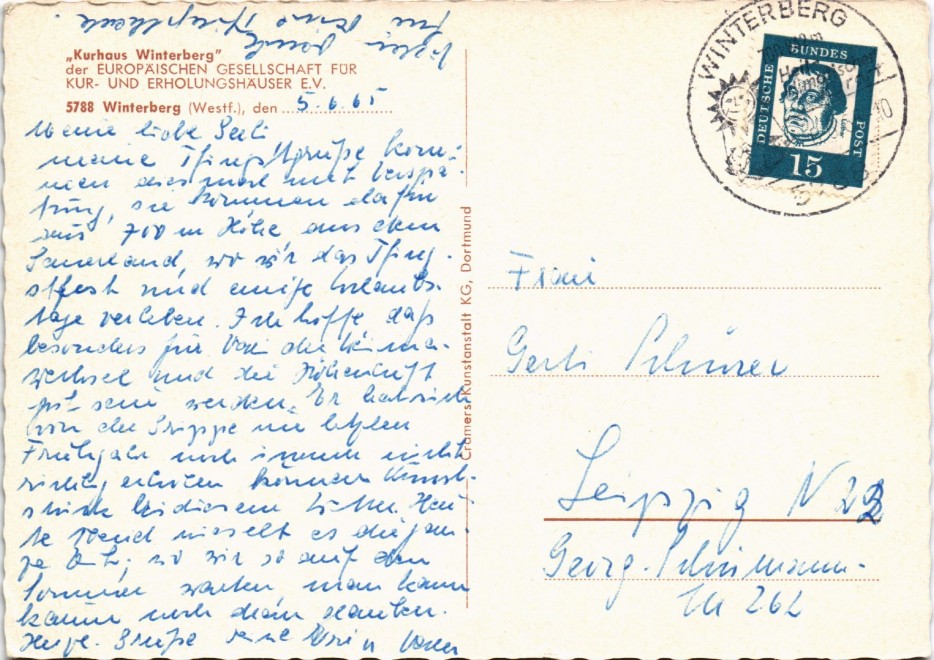 „Kurhaus Winterberg"
der EUROPÄISCHEN GESELLSCHAFT FÜR
KUR- UND ERHOLUNGSHÄUSER E.V.
5788 Winterberg (Westf.), den 5.6.65
Meine liebe Gerti
meine Pfingstgrüße kom-
men diesmal mit Verspä-
tung, sie kommen dafür
aus 700 m Höhe aus dem
Sauerland, wo wir das Pfing-
stfest und einige Urlaubs-
tage verleben. Ich hoffe daß
besonders für die Klima-
wechsel und die Höhenluft
gut sein werden. Er hat sich
von der Grippe im letzten
Frühjahr noch immer nicht
richtig erholen können Kunst-
stück bei diesem Wetter. Heu-
te Abend nieselt es die gan-
ze Zt, wo wir so auf den
Sommer warten, man kann
kaum noch dran glauben.
Herzl. Grüße
Cramers Kunstanstalt KG, Dortmund
WINTERBERG
DEUTSCHE BUNDES POST
15
Frau
Gerti Schürer
Leipzig N 22
Georg-Schumann-
262